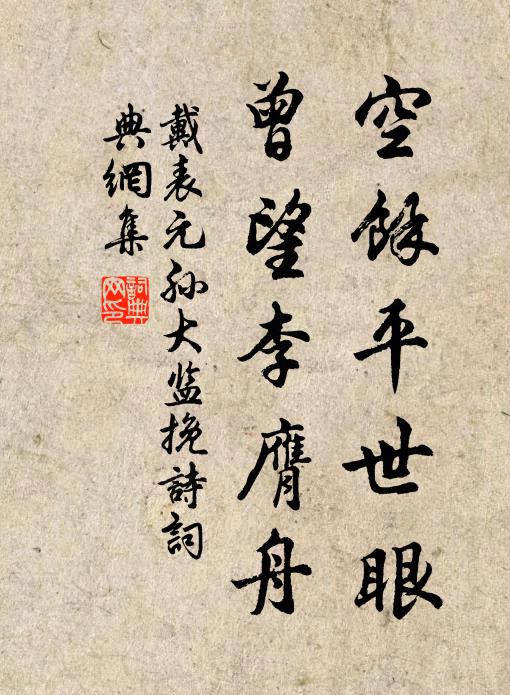 空餘平世眼
曾望李膺舟
戴表元孙大监挽詩詞
典網集
詞典網印